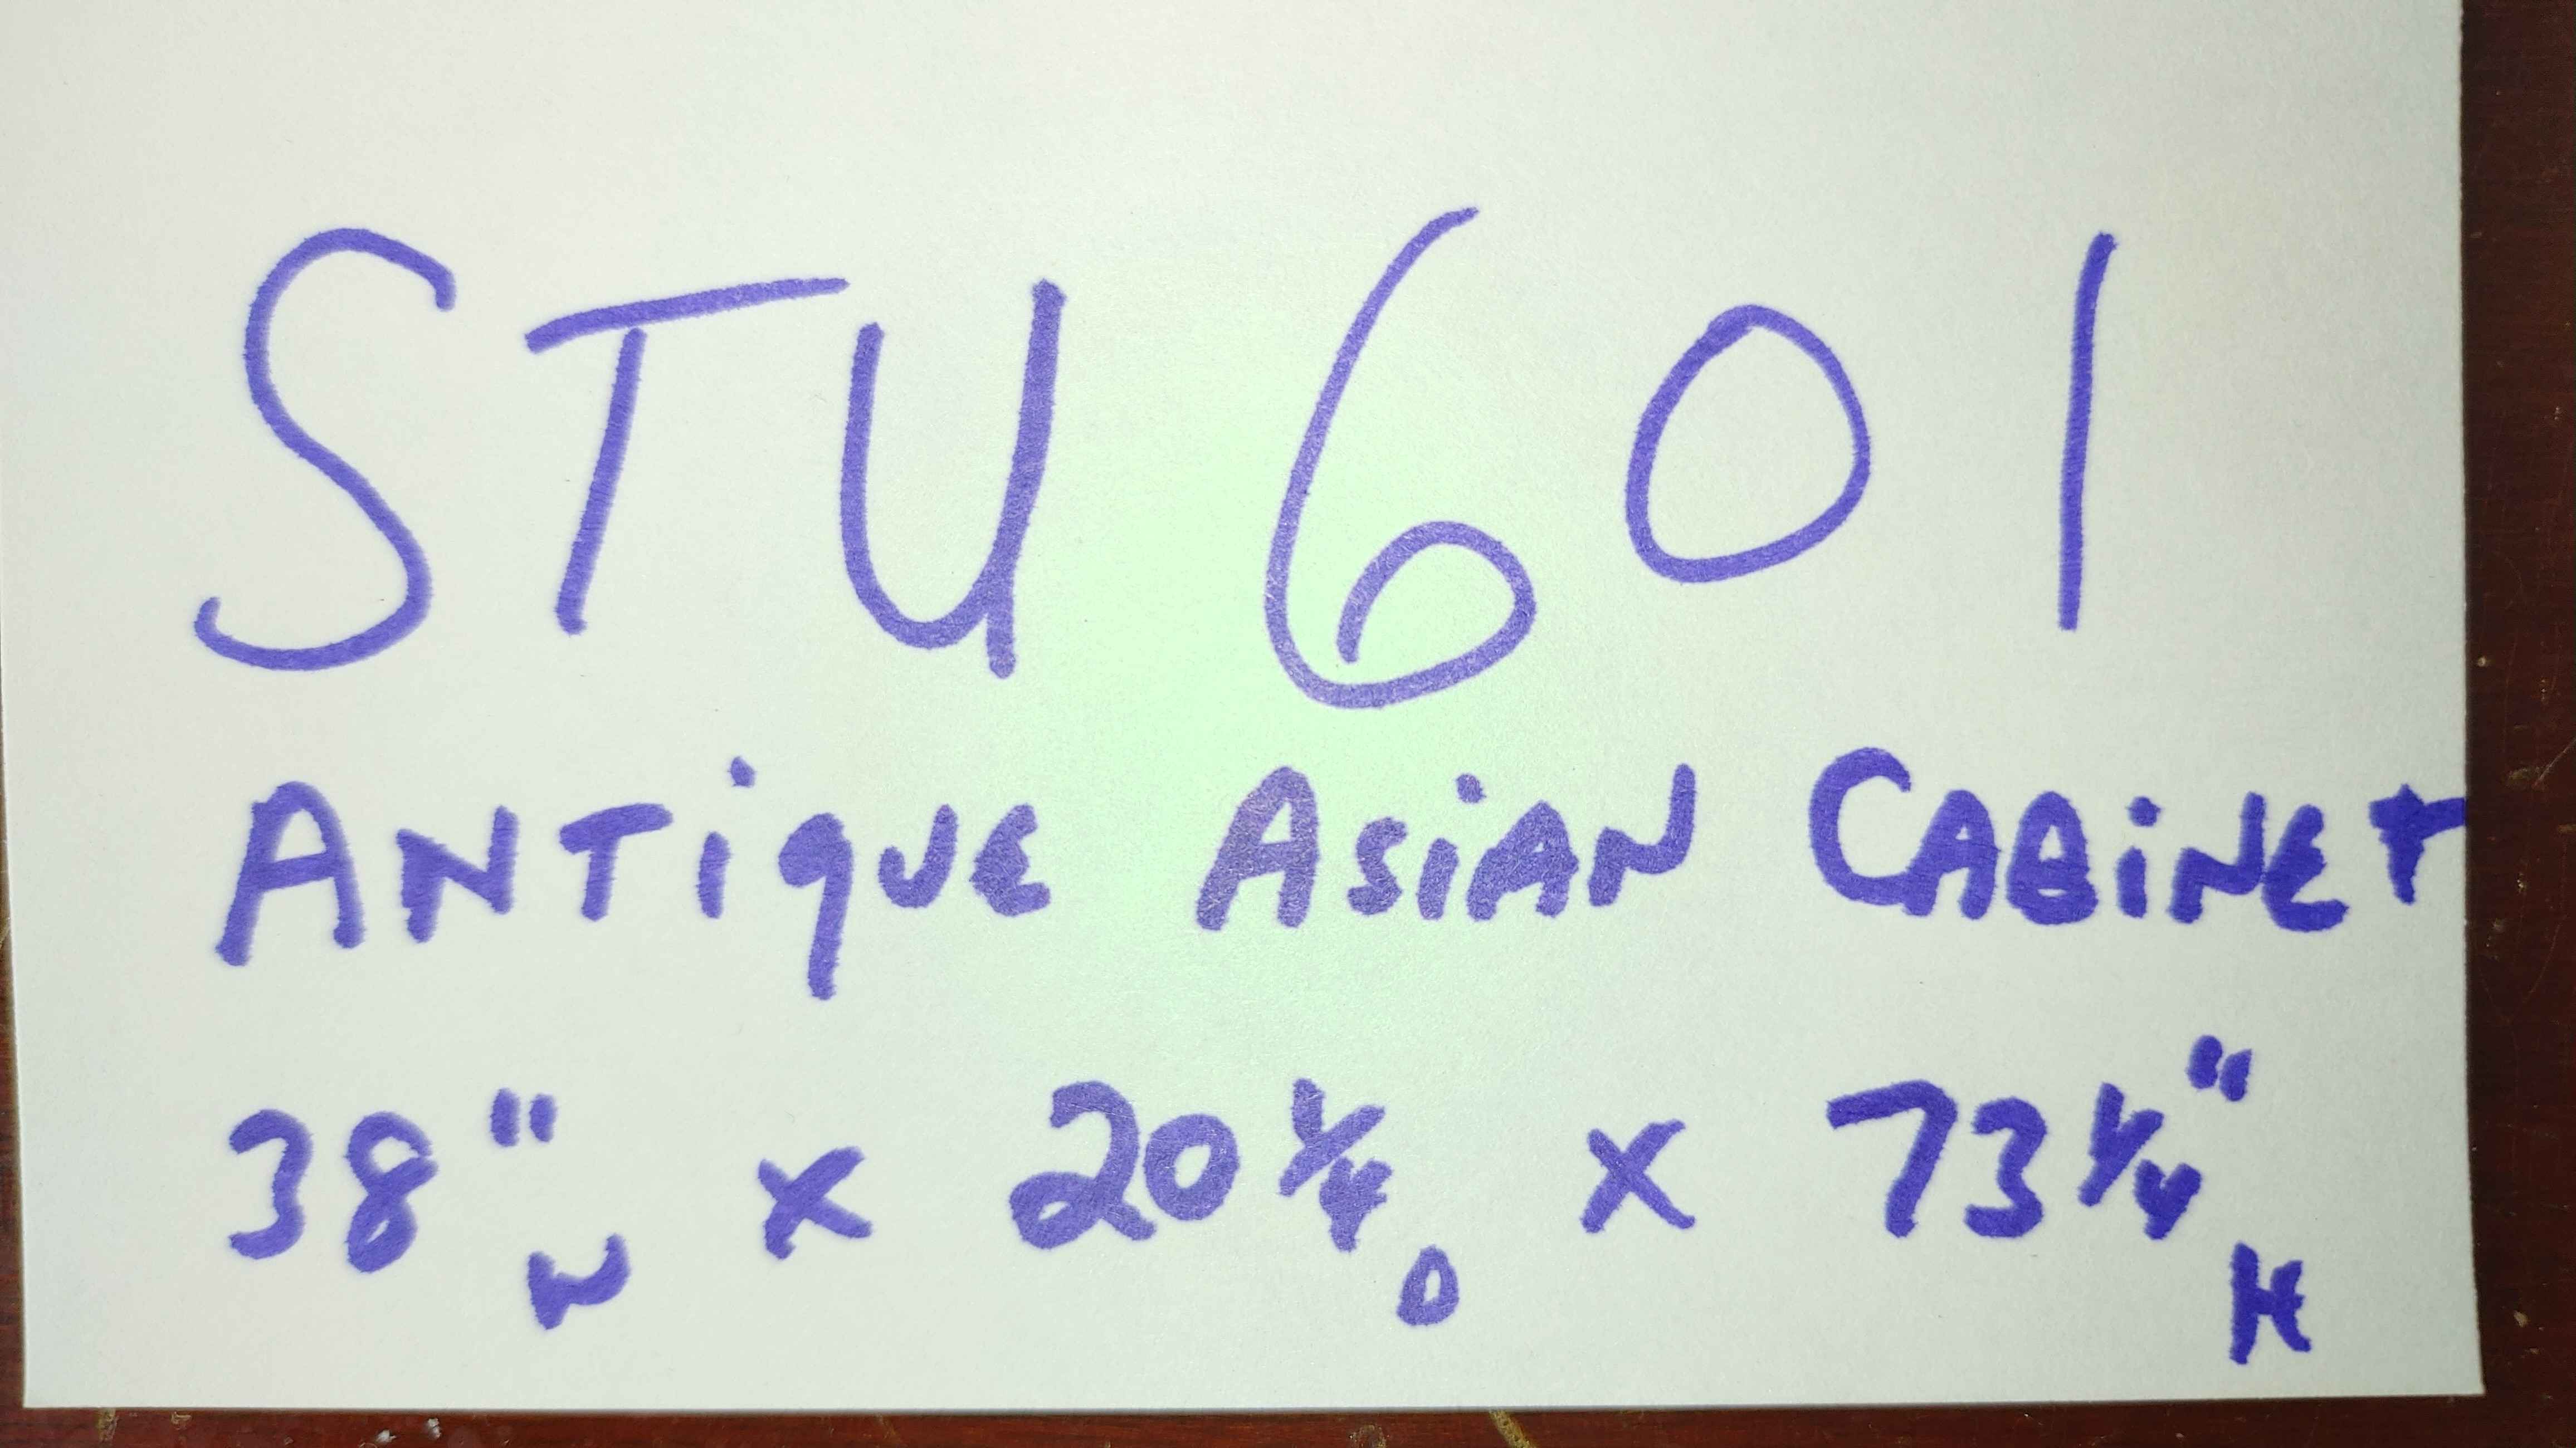 STU 601
ANTiQUE ASiAN CABiNET
38" W x 20 1/4 D x 73 1/4" H